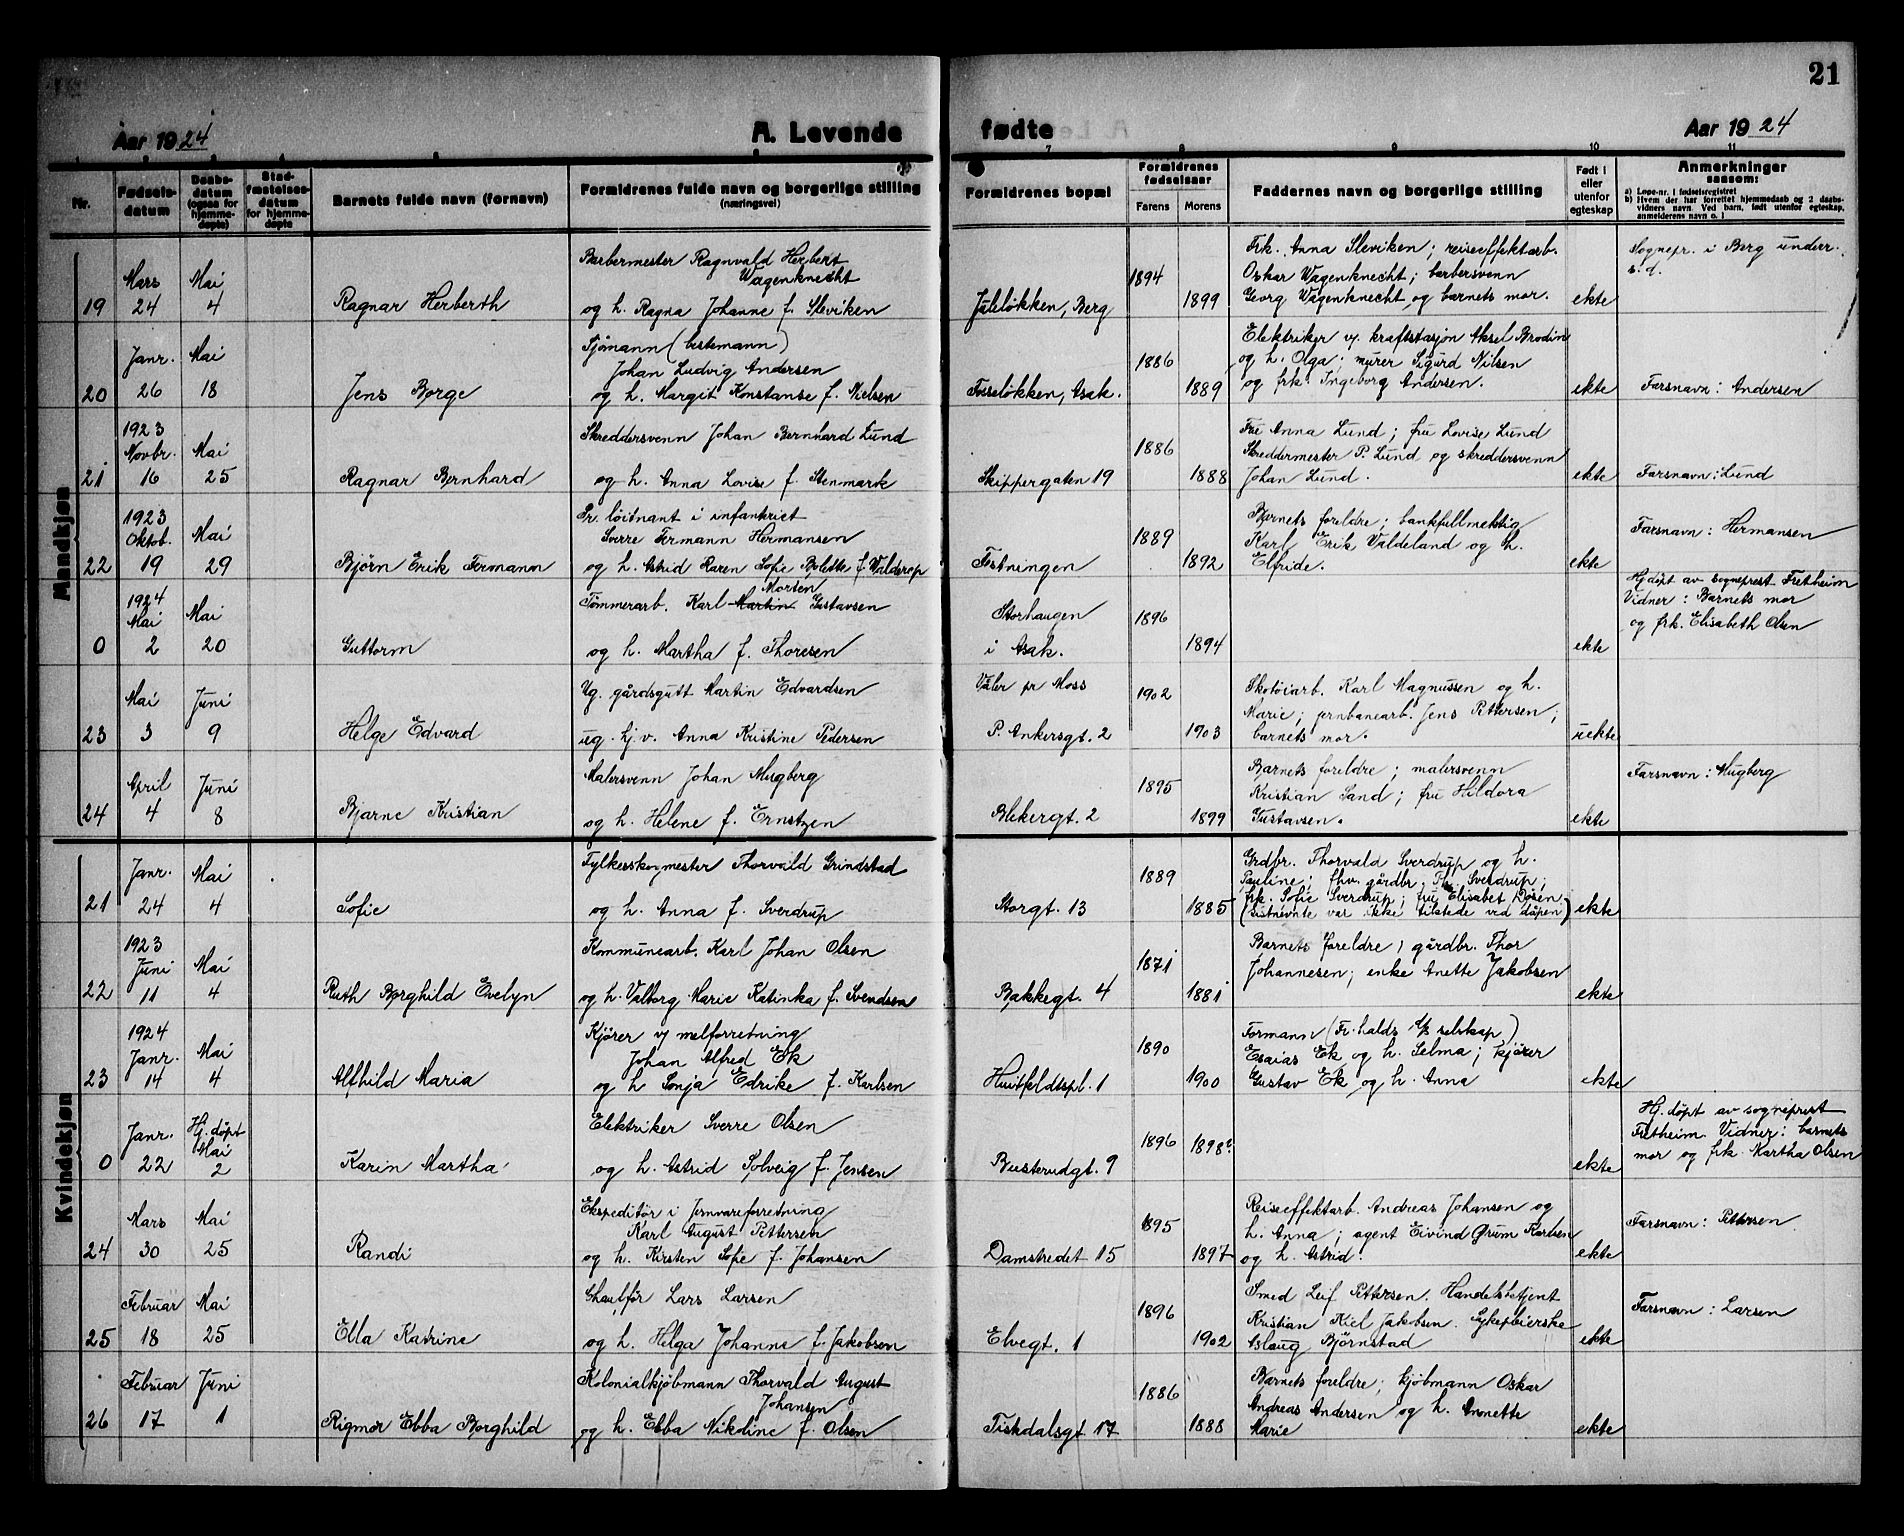 21
Aar 1924 A. Levende fødte Aar 1924
7 8 9 10 11
Nr. Fødsels-datum Daabs-datum (ogsaa for hjemme-døpte) Stad-fæstelses-datum for hjemme-døpte Barnets fulde navn (fornavn) Forældrenes fulde navn og borgerlige stilling (næringsvei) Forældrenes bopæl Forældrenes fødselsaar Farens Morens Faddernes navn og borgerlige stilling Født i eller utenfor egteskap Anmerkninger saasom:
a) Løpe-nr. i fødselsregistret
b) Hvem der har forrettet hjemmedaab og 2 daabs-vidners navn. Ved barn, født utenfor egteskap, anmelderens navn o. l
Mandkjøn
19 Mars 24 Mai 4 Ragnar Herberth
Barbermester Ragnvald Herbert
Wagenknecht
og h. Ragna Johanne f. Sleviken
Juleløkken, Berg 1894 1899
Frk. Anna Sleviken; reiseeffektarb.
Oskar Wagenknecht; barbersvenn
Georg Wagenknecht og barnets mor.
ekte
Sognepr. i Berg underr.
s.d.
20 Janr. 26 Mai 18 Jens Borge
Sjømann (bestemann)
Johan Ludvig Andersen
og h. Margit Konstanse f. Nielsen
Fosseløkken, Asak. 1886 1889
Elektriker v/ kraftstasjon Aksel Brodin
og h. Olga; murer Sigurd Nilsen
og frk. Ingeborg Andersen.
ekte
Farsnavn: Andersen
21 1923 Novbr. 16 Mai 25 Ragnar Bernhard
Skreddersvenn Johan Bernhard Lund
og h. Anna Lovise f. Stenmark
Skippergaten 19 1886 1888
Fru Anna Lund; fru Lovise Lund
Skreddermester P. Lund og skreddersvenn
Johan Lund.
ekte
Farsnavn: Lund
22 1923 Oktob. 19 Mai 29 Bjørn Erik Fermann
Pr. løitnant i infantriet
Sverre Fermann Hermansen
og h. Astrid Karen Sofie Bolette f. Walderop
Festningen 1889 1892
Barnets foreldre; bankfullmektig
Karl Erik Valdeland og h.
Elfride.
ekte
Farsnavn: Hermansen
0 1924 Mai 2 Mai 20 Guttorm
Morten
Tømmerarb. Karl Martin Gustavsen
og h. Martha f. Thoresen
Storhaugen
i Asak. 1896 1894
ekte
Hj.døpt av sogneprest Fretheim
Vidner: Barnets mor
og frk. Elisabeth Olsen
23 Mai 3 Juni 9 Helge Edvard
Ug. gårdsgutt Martin Edvardsen
ug. hj.v. Anna Kristine Pedersen
Våler pr Moss
P. Ankersgt. 2 1902 1903
Skotøiarb. Karl Magnussen og h.
Marie; jernbanearb. Jens Pettersen;
barnets mor.
uekte
24 April 4 Juni 8 Bjarne Kristian
Malersvenn Johan Mugberg
og h. Helene f. Ernstzen
Blekergt. 2 1895 1899
Barnets foreldre; malersvenn
Kristian Sand; fru Hildora
Gustavsen.
ekte
Farsnavn: Mugberg
Kvindekjøn
21 Janr. 24 Mai 4 Sofie
Fylkesskogmester Thorvald Grindstad
og h. Anna f. Sverdrup
Storgt. 13 1889 1885
Grdbr. Thorvald Sverdrup og h.
Pauline; fhv. gårdbr. Sverdrup;
frk. Sofie Sverdrup; fru Elisabet Døsen
(sistnevnte var ikke tilstede ved dåpen)
ekte
22 1923 Juni 11 Mai 4 Ruth Borghild Evelyn
Kommunearb. Karl Johan Olsen
og h. Valborg Marie Katinka f. Svendsen
Bakkegt. 4 1871 1881
Barnets foreldre; gårdbr. Thor
Johannesen; enke Anette Jakobsen
ekte
23 1924 Janr. 14 Mai 4 Alfhild Maria
Kjører v/ melforretning
Johan Alfred Ek
og h Sonja Edrike f. Karlsen
Huitfeldtspl. 1 1890 1900
Formann (Fr.halds selskap)
Esaias Ek og h. Selma; kjører
Gustav Ek og h. Anna
ekte
0 Janr. 22 Hj.døpt Mai 2 Karin Martha
Elektriker Sverre Olsen
og h. Astrid Solveig f. Jensen
Busterudgt. 9 1896 1898
ekte
Hj.døpt av sogneprest
Fretheim. Vidner: barnets
mor og frk. Martha Olsen
24 Mars 30 Mai 25 Randi
Ekspeditør i Jernvareforretning
Karl August Pettersen
og h. Kirsten Sofie f. Johansen
Damstredet 15 1895 1897
Reiseeffektarb. Andreas Johansen og
h. Anna; agent Eivind Grum Karlsen
og h. Astrid.
ekte
Farsnavn: Pettersen
25 Februar 18 Mai 25 Ella Katrine
Chaufför Lars Larsen
og h. Helga Johanne f. Jakobsen
Elvegt. 1 1896 1902
Smed Leif Pettersen. Handelsbetjent
Kristian Kiel Jakobsen. Sykepleierske
Aslaug Bjørnstad
ekte
Farsnavn: Larsen
26 Februar 17 Juni 1 Rigmor Ebba Borghild
Kolonialkjøbmann Thorvald August
Johansen
og h. Ebba Nikoline f. Olsen
Tistedalsgt 17 1886 1888
Barnets foreldre; kjøbmann Oskar
Andreas Andersen og h. Annette
Marie
ekte